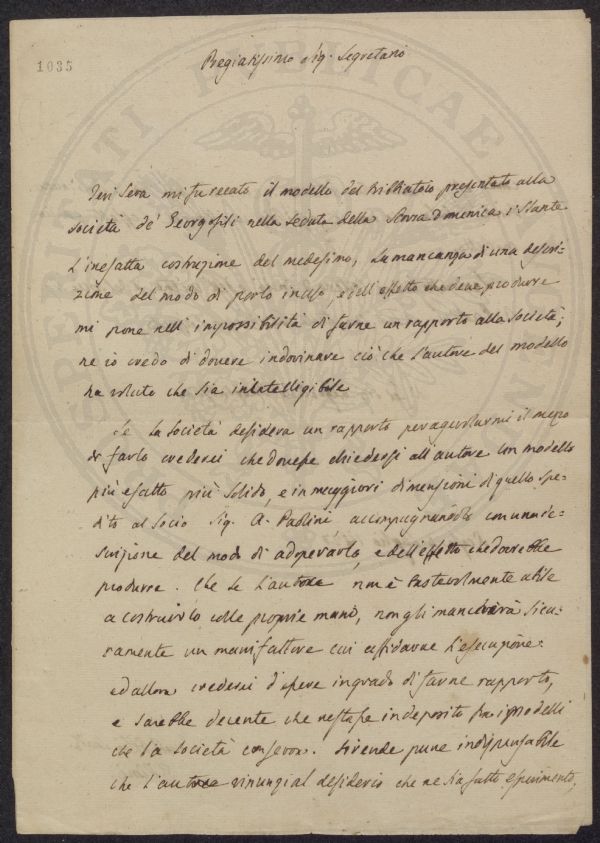 1035
Pregiatissimo Sig. Segretario
Ieri sera mi fu recato il modello del presentato alla
società de' Georgofili nella seduta della Domenica
L'inesatta costruzione del medesimo, la mancanza di una descri-
zione del modo di porlo in uso, e dell'effetto che deve produrre
mi pone nell'impossibilità di farne un rapporto alla società;
ne io credo di dovere indovinare ciò che l'autore del modello
ha voluto che sia inintelligibile
Se la società desidera un rapporto per agevolarmi il mezo
di farlo crederei che dovesse chiedersi all'autore un modello
più esatto più solido, e in maggiori dimensioni di quello spe-
dito al socio Sig. A. Paolini accompagnandolo con una de-
scrizione del modo di adoperarlo, e dell'effetto che dovrebbe
produrre. Che se l'autore non è bastevolmente abile
a costruirlo colle proprie mani, non gli mancherà sicu-
ramente un manifattore cui affidarne l'esecuzione:
ed allora crederei d'essere in grado di farne rapporto,
e sarebbe decente che restasse in deposito fra i modelli
che la società conserva. Si rende pure indispensabile
che l'autore rinunzi al desiderio che ne sia fatto esperimento,